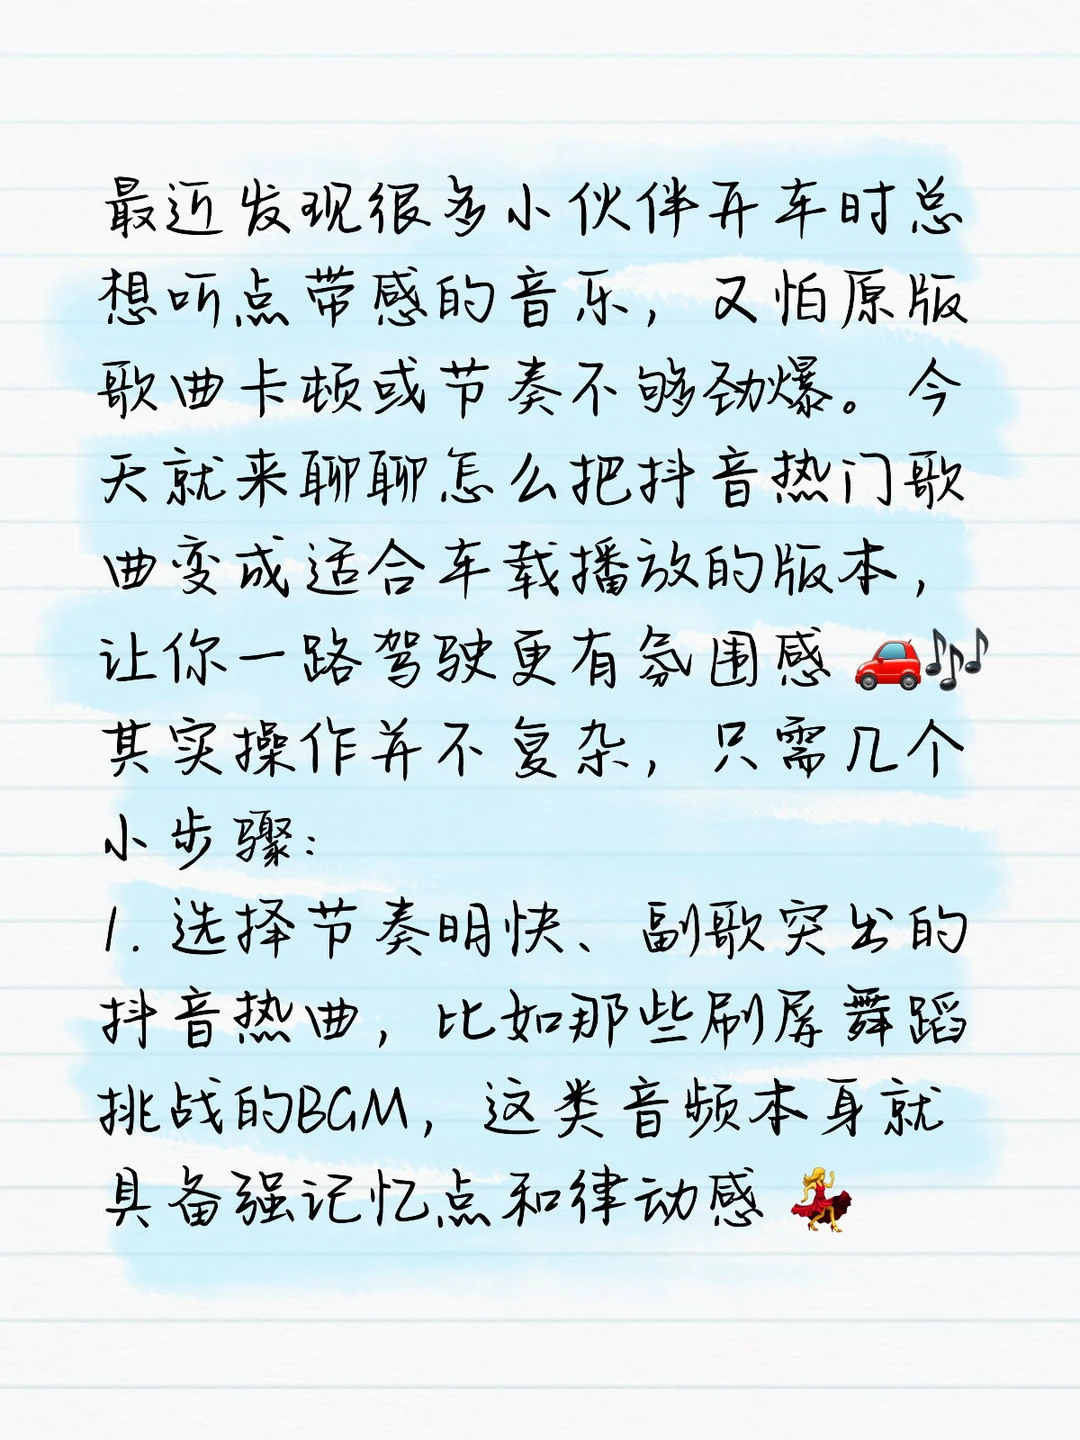 最近发现很多小伙伴开车时总
想听点带感的音乐，又怕原版
歌曲卡顿或节奏不够劲爆。今
天就来聊聊怎么把抖音热门歌
曲变成适合车载播放的版本，
让你一路驾驶更有氛围感 🚗🎶
其实操作并不复杂，只需几个
小步骤：
1. 选择节奏明快、副歌突出的
抖音热曲，比如那些刷屏舞蹈
挑战的BGM，这类音频本身就
具备强记忆点和律动感 💃